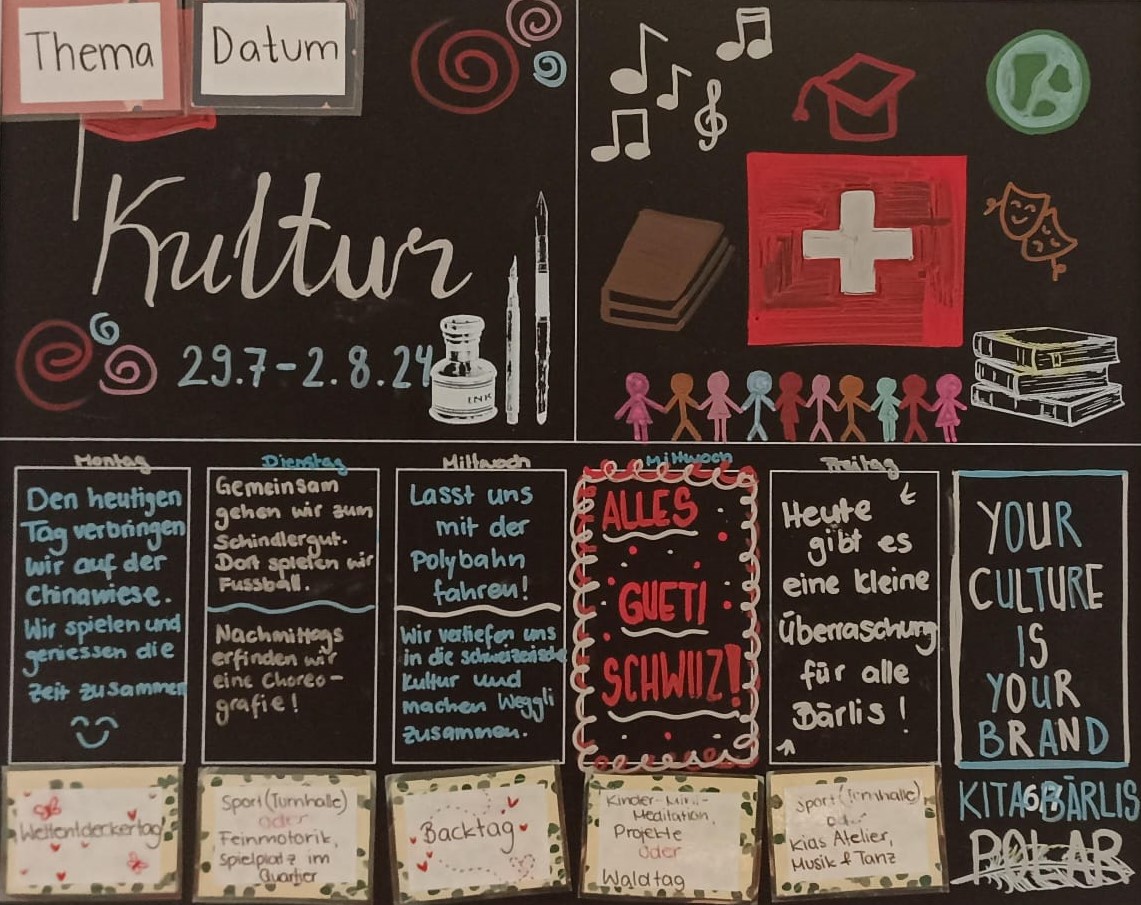 Thema
Datum
Kultur
29.7-2.8.24
INK
Montag
Den heutigen
Tag verbringen
wir auf der
Chinawiese.
Wir spielen und
geniessen die
Zeit zusammen
Dienstag
Gemeinsam
gehen wir zum
Schindlergut.
Dort spielen wir
Fussball.
Nachmittags
erfinden wir
eine Choreo-
grafie!
Mittwoch
Lasst uns
mit der
Polybahn
fahren!
Wir vertiefen uns
in die schweizerische
Kultur und
machen Weggli
zusammen.
Mittwoch
ALLES
GUETI
SCHWIIZ!
Freitag
Heute
gibt es
eine kleine
Überraschung
für alle
Bärlis!
YOUR
CULTURE
IS
YOUR
BRAND
Weltentdeckertag
Sport (Turnhalle)
Oder
Feinmotorik,
Spielplatz im
Quartier
Backtag
Kinder-Mini-
Meditation,
Projekte
Oder
Waldtag
Sport (Turnhalle)
Oder
Kias Atelier,
Musik & Tanz
KITA BÄRLIS
POLAR